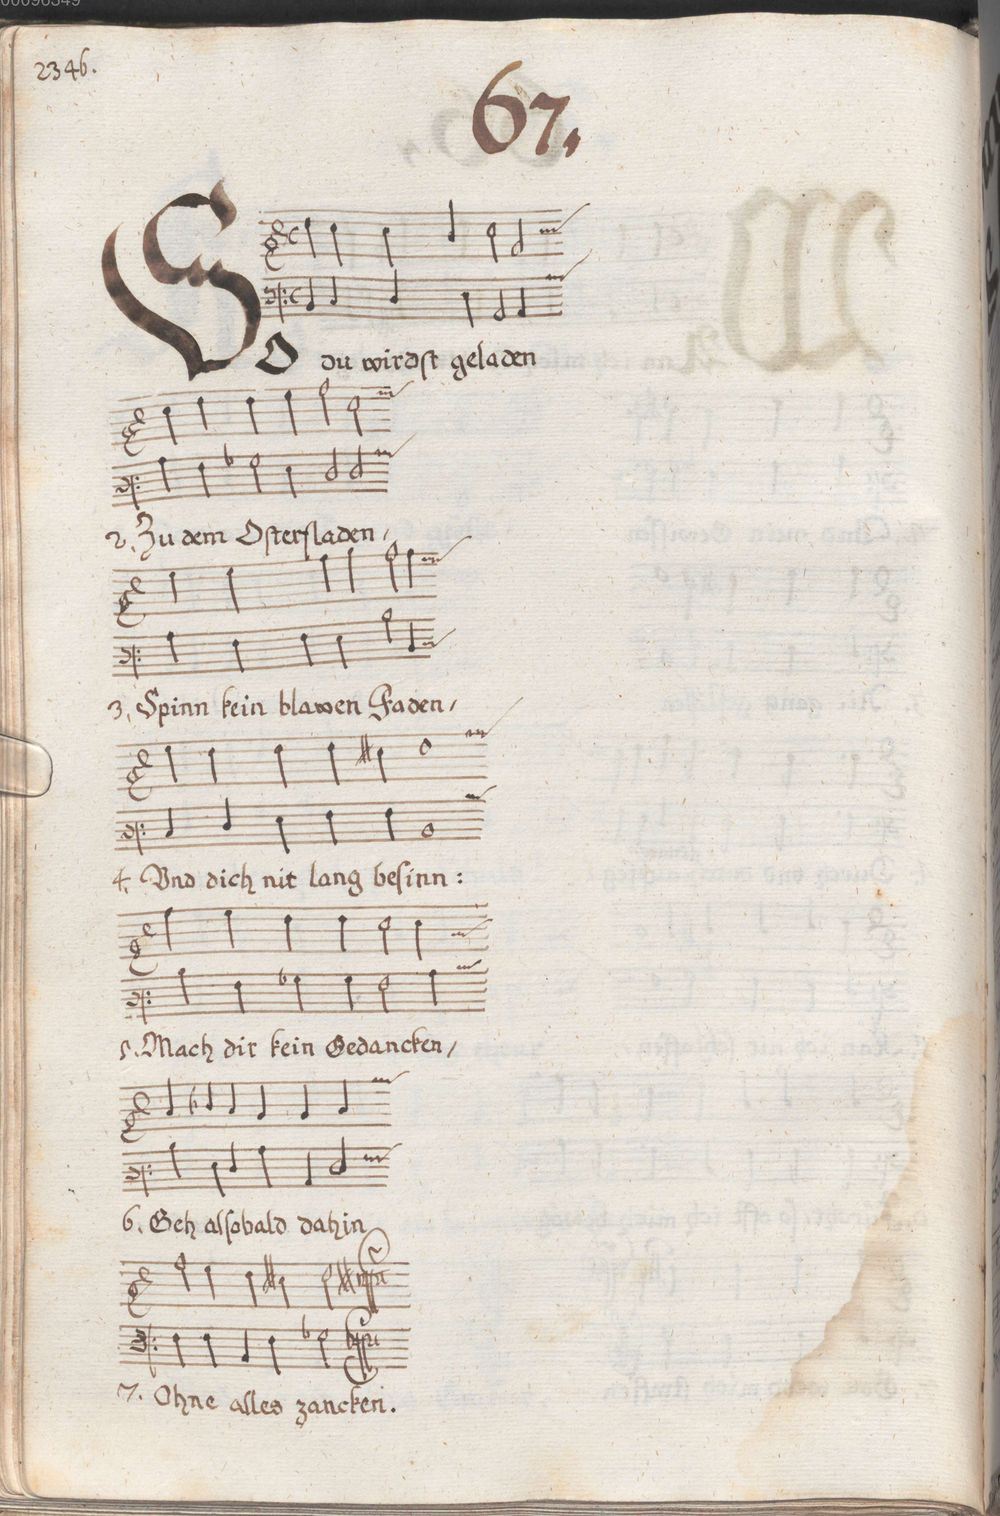 00096349
2346.
67.
SO du wirdst geladen
2. Zu dem Ostersladen,
3. Spinn kein blawen Faden,
4. Vnd dich nit lang besinn:
5. Mach dir kein Gedancken,
6. Geh alsobald dahin
7. Ohne alles zancken.